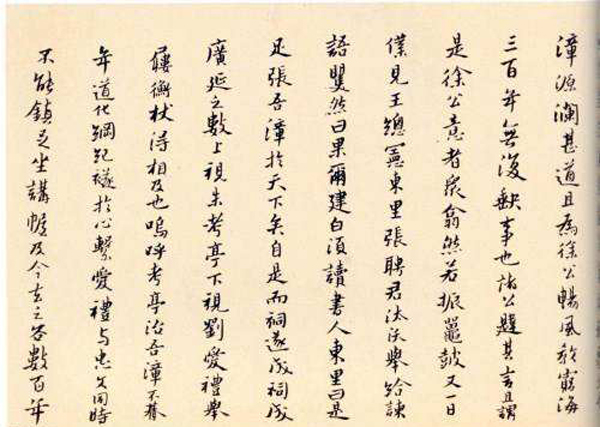 漳源瀾甚道且為徐公暢風教窮海
三百年無復軼事也諸公韙其言且謂
是徐公意者眾翕然若振鼉鼓又一日
僕見王總憲東里張聘君汰沃舉給諫
語瞿然曰果爾建白須讀書人東里曰是
足張吾漳於天下矣自是而祠遂成祠成
廣延之數上視朱考亭下視劉愛禮舉
屨衡杖得相及也嗚呼考亭治吾漳不暮
年道化綱紀襚於心繫愛禮与忠文同時
不能鎮之坐講幄及今去之各數百年